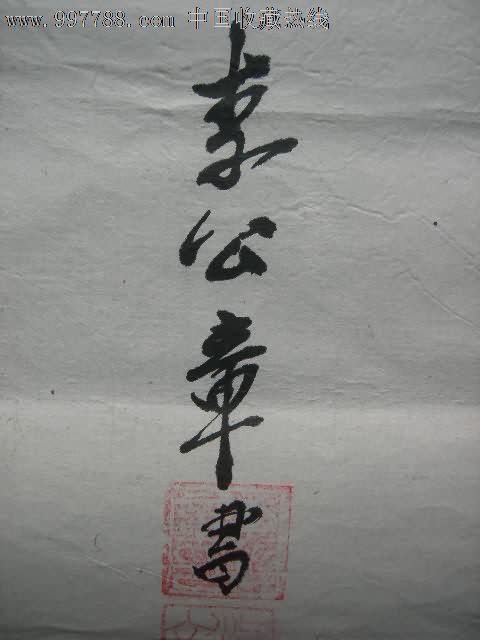 www.997788.com 中国收藏热线
李公章書